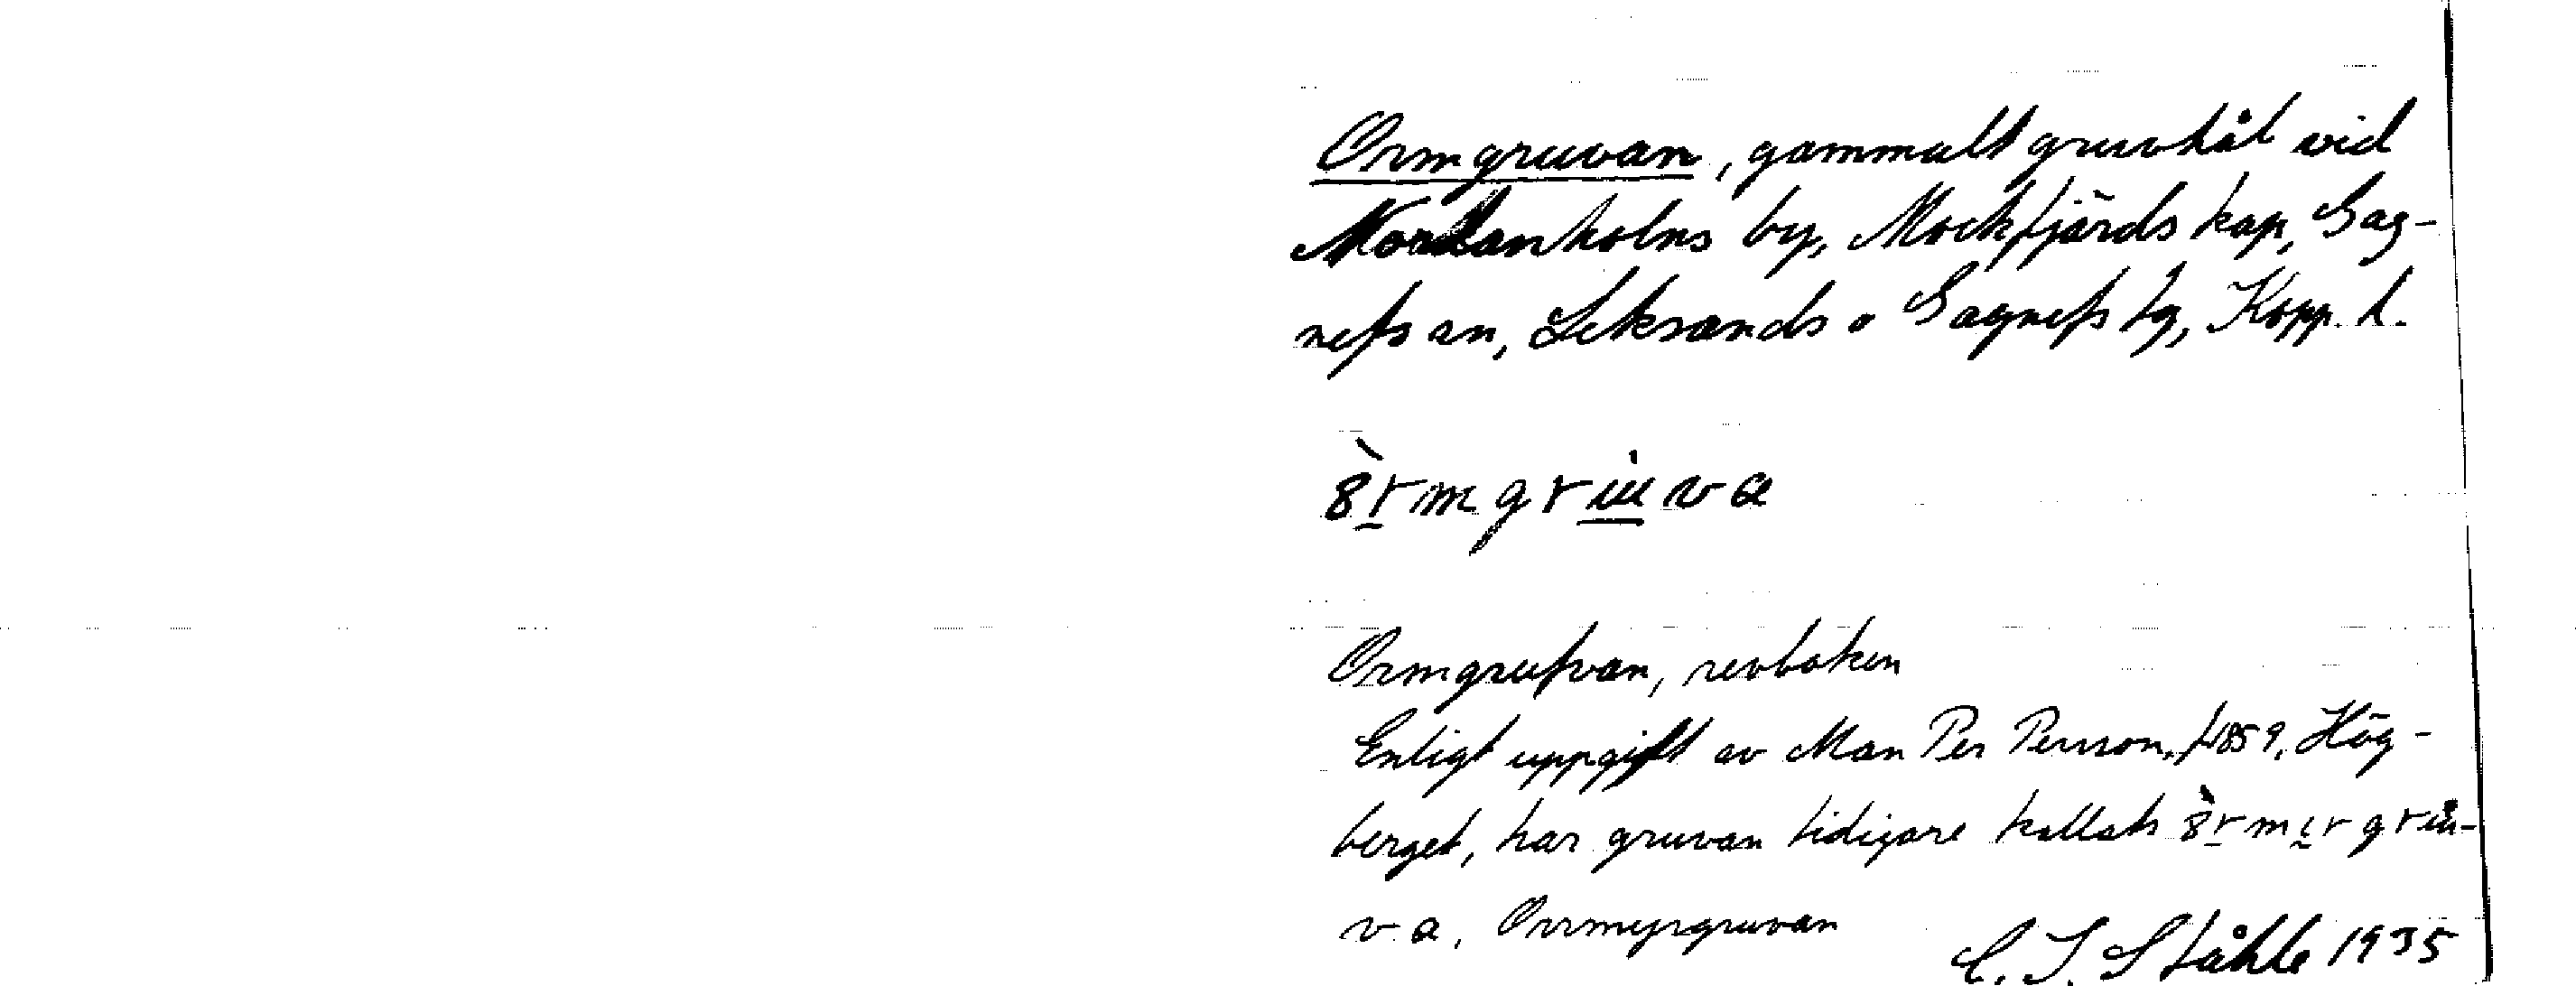 Ormgruvan, gammalt gruvhål vid
Nordanholns by, Mockfjärds kap, Gag-
nefs sn, Leksands o Gagnefs tg, Kopp. l.
8̀rmgrūva
Ormgrufvan, revboken
Enligt uppgift av Man Per Persson, f. 1859, Hög-
berget, har gruvan tidigare kallats 8̀rmırgru̇-
va, Orrmyrgruvan
C. I. Ståhle 1935